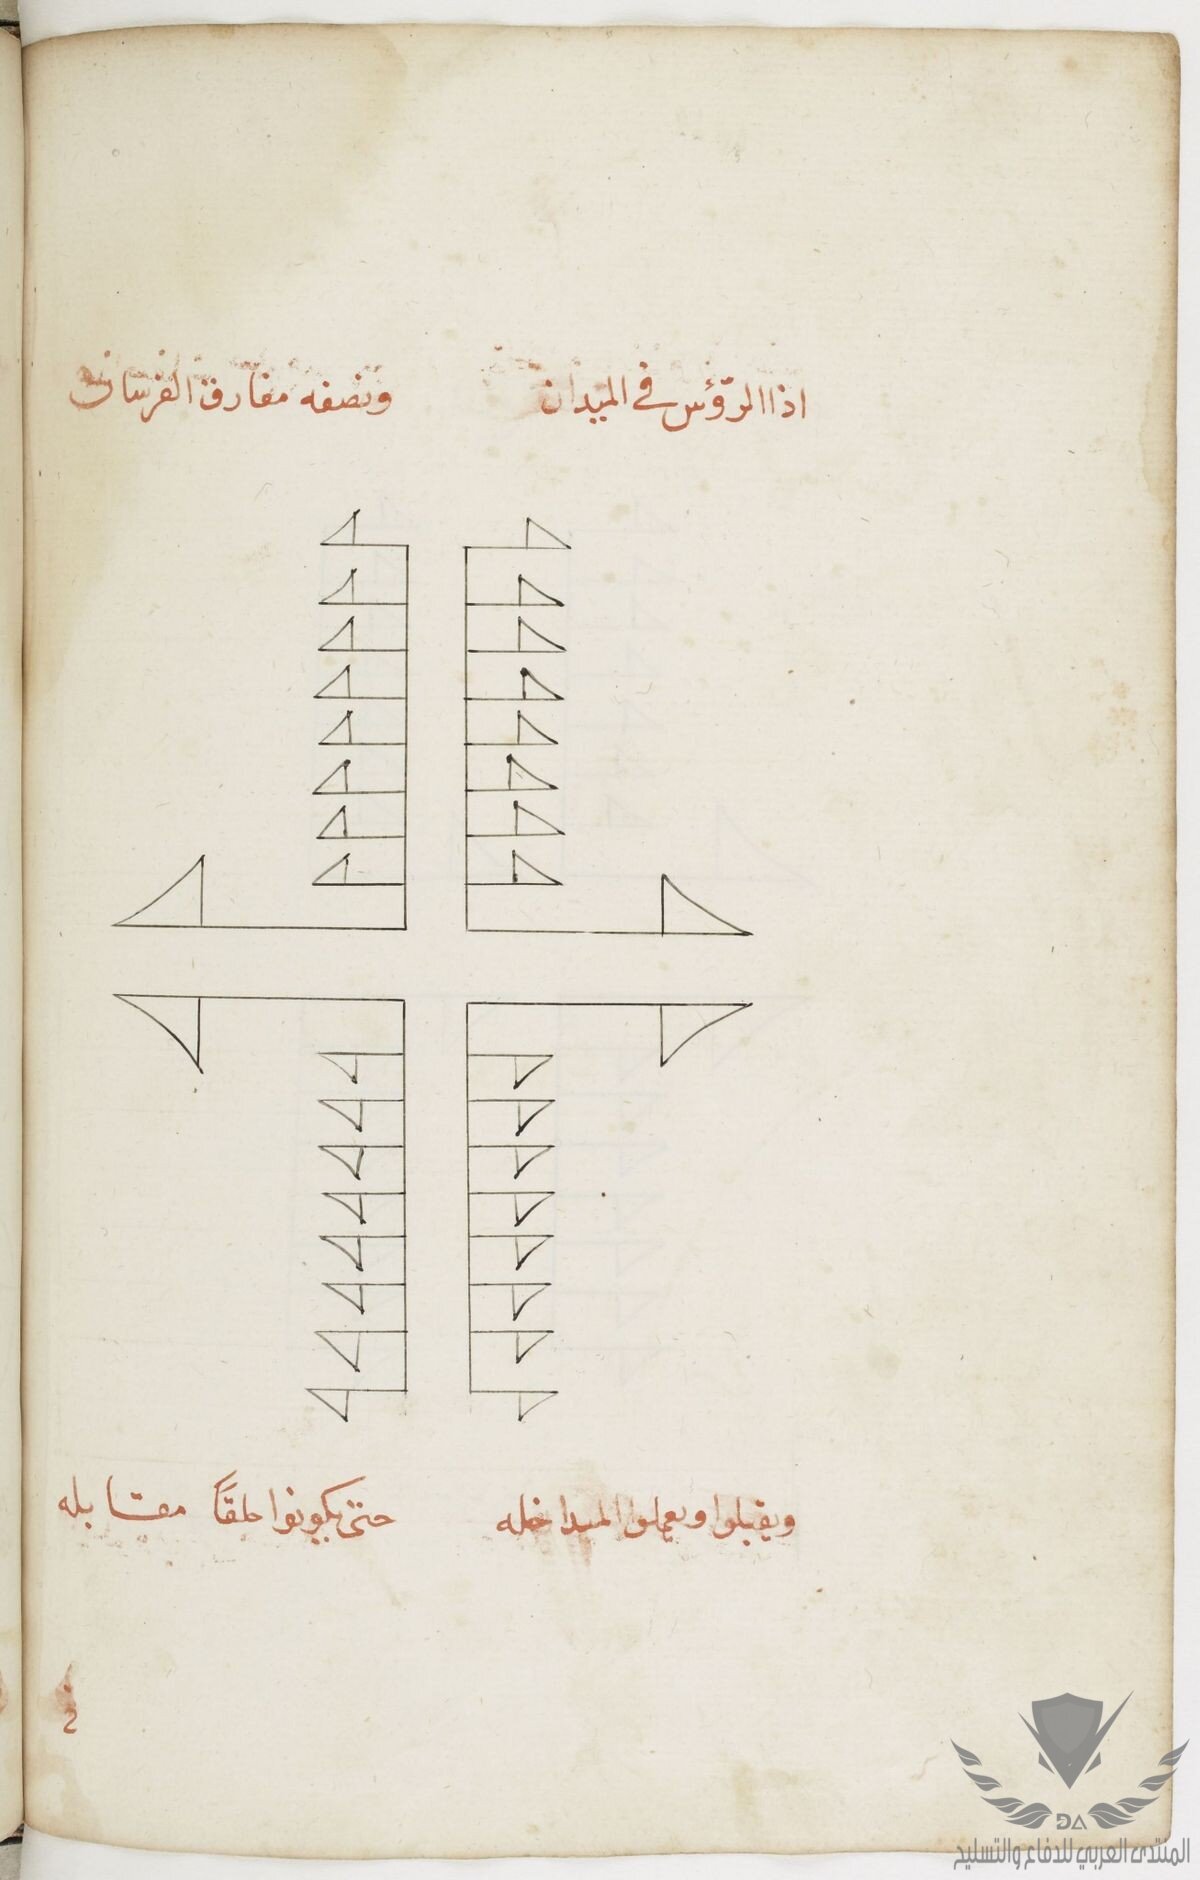 اذا الرؤس في الميدان ونصفه مفارق الفرسان
ويقبلوا ويعملوا المداخله حتى يكونوا حلقاً مقابله
المنتدى العربي للدفاع والتسليح